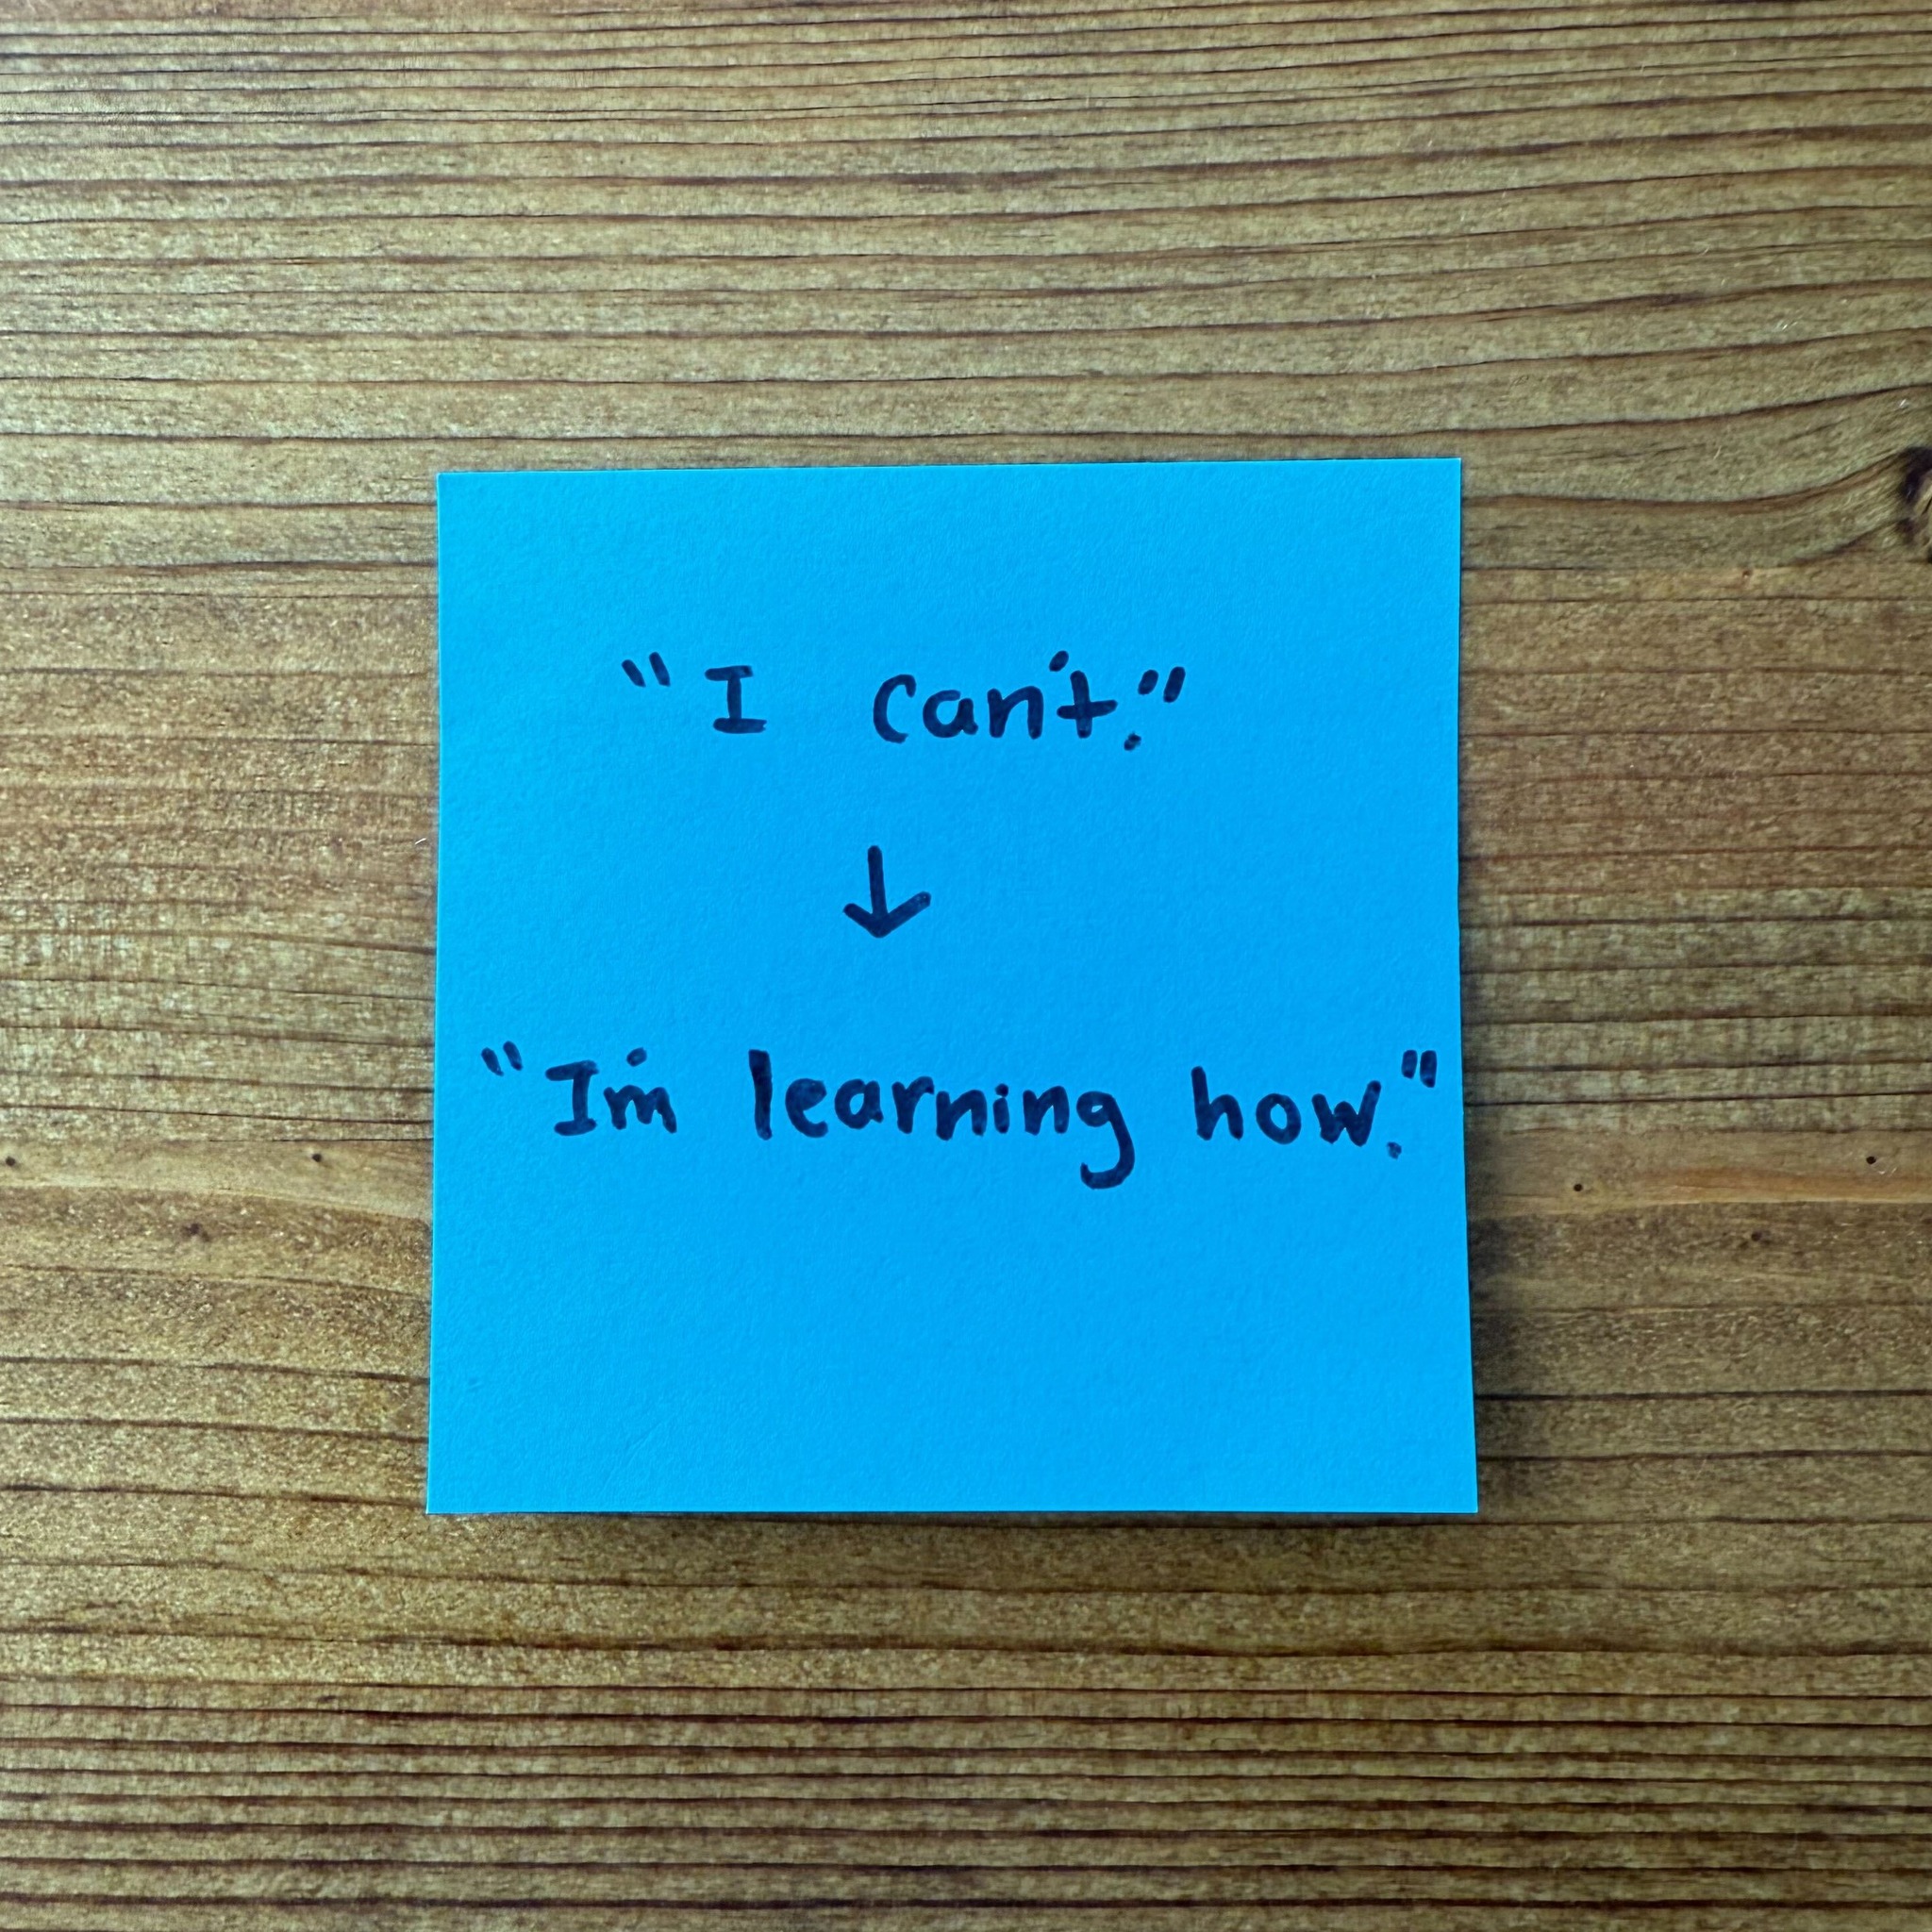 "I can't."
↓
"I'm learning how."